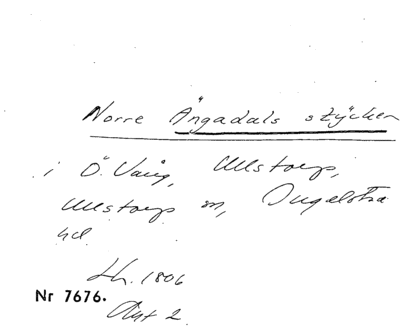 Norre Ängadals stycken
i Ö. Vång, Ullstorp,
Ullstorps sn, Ingelstra
hd.
Lh. 1806
Nr 7676.
Akt 2